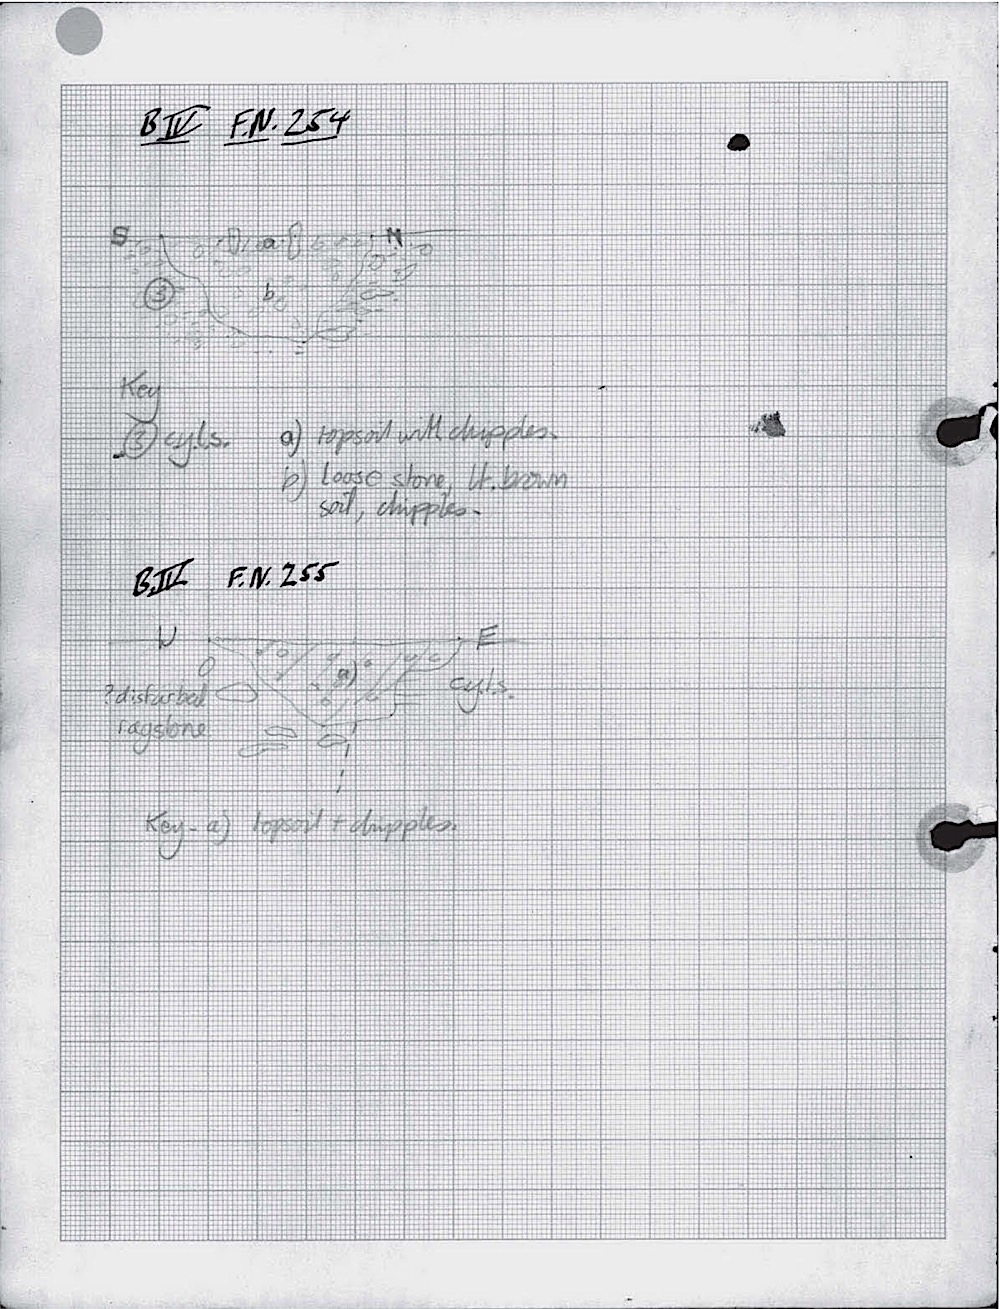 B IV F.N. 254
S a N
3 b
Key
3 cyls. a) topsoil with chipples.
b) loose stone, lt. brown
soil, chipples.
B.IV F.N. 255
W E
a)
cyls.
? disturbed
ragstone
Key - a) topsoil + chipples.